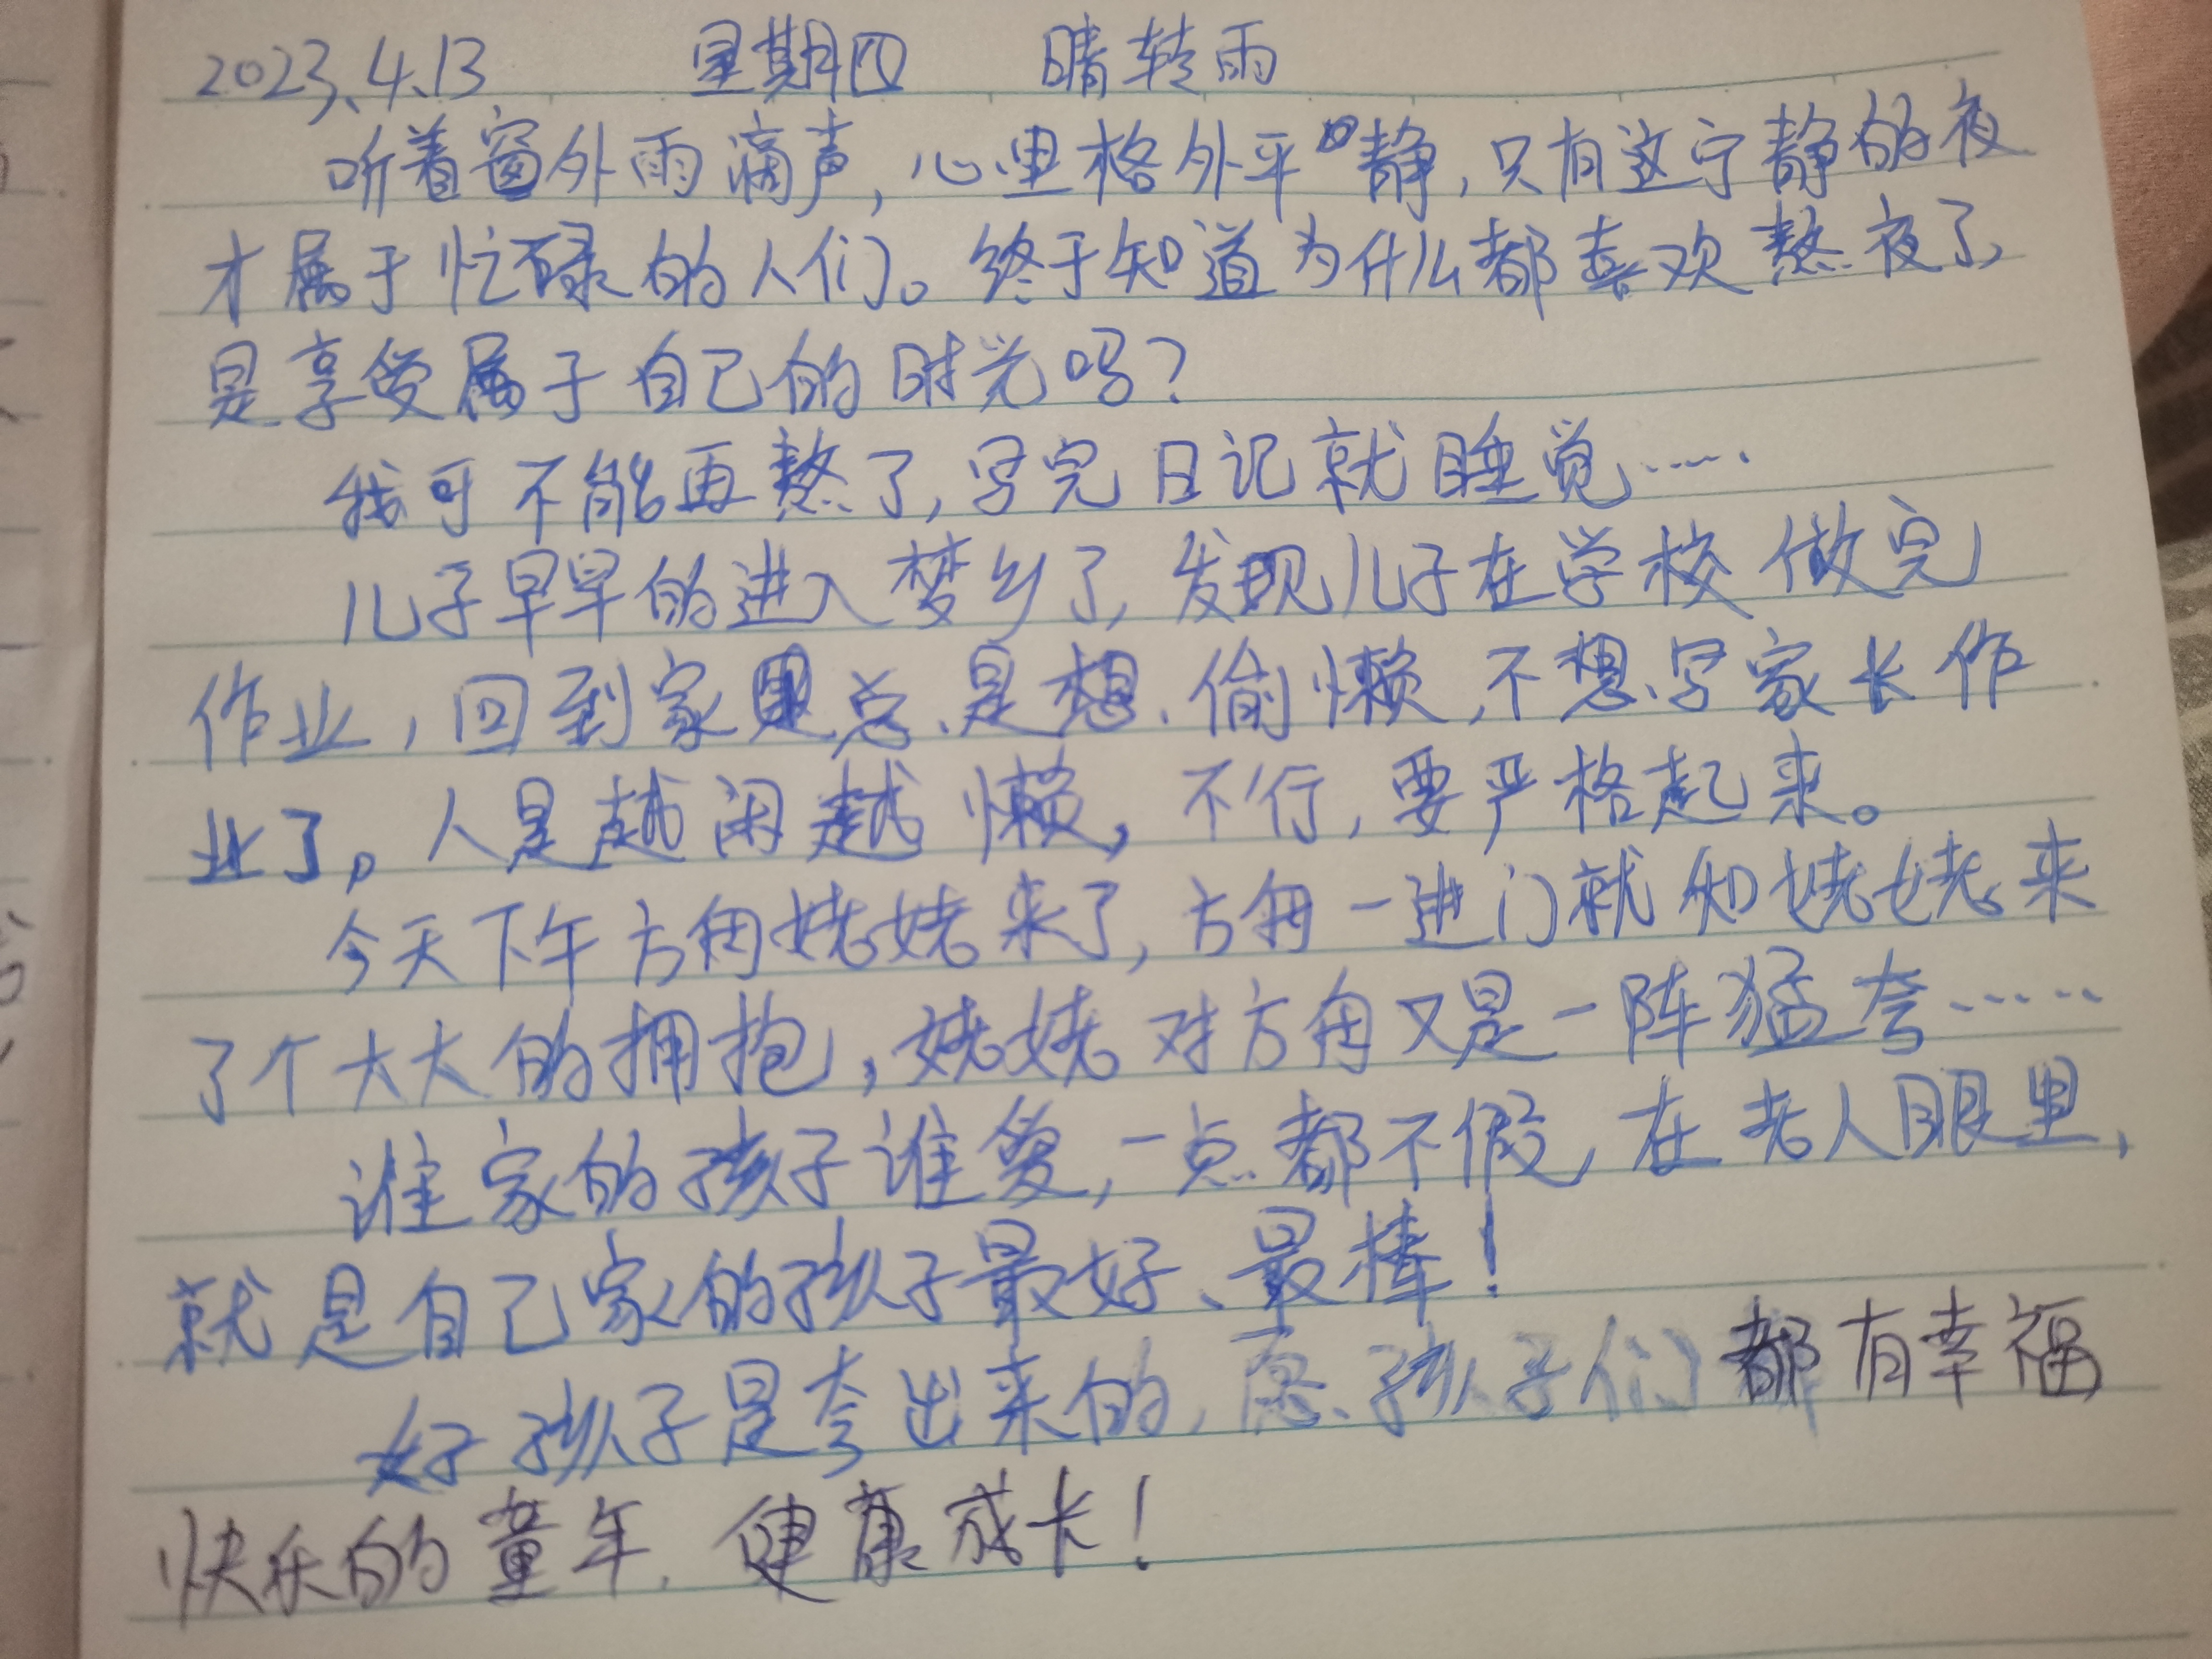 2023.4.13 星期四 晴转雨
听着窗外雨滴声，心里格外平静，只有这宁静的夜
才属于忙碌的人们。终于知道为什么都喜欢熬夜了，
是享受属于自己的时光吗？
我可不能再熬了，写完日记就睡觉……
儿子早早的进入梦乡了，发现儿子在学校做完
作业，回到家里总是想偷懒，不想写家长作
业了。人是越闲越懒，不行，要严格起来。
今天下午方冉姥姥来了，方冉一进门就和姥姥来
了个大大的拥抱，姥姥对方冉又是一阵猛夸……
谁家的孩子谁爱，一点都不假，在老人眼里，
就是自己家的孩子最好、最棒！
好孩子是夸出来的，愿孩子们都有幸福
快乐的童年，健康成长！